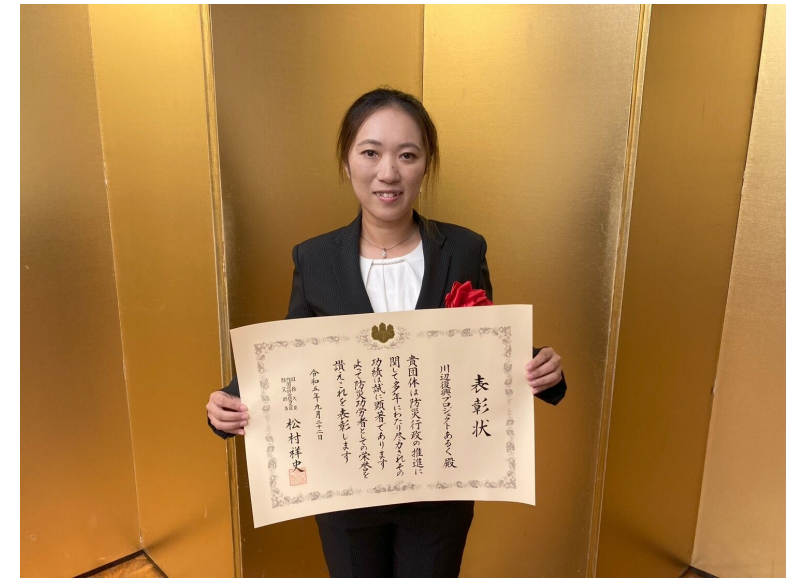 表彰状
川辺復興プロジェクトあるく殿
貴団体は防災行政の推進に
関して多年にわたり尽力されその
功績は誠に顕著であります
よって防災功労者としての栄誉を
讃えこれを表彰します
令和五年九月二十二日
松村祥史